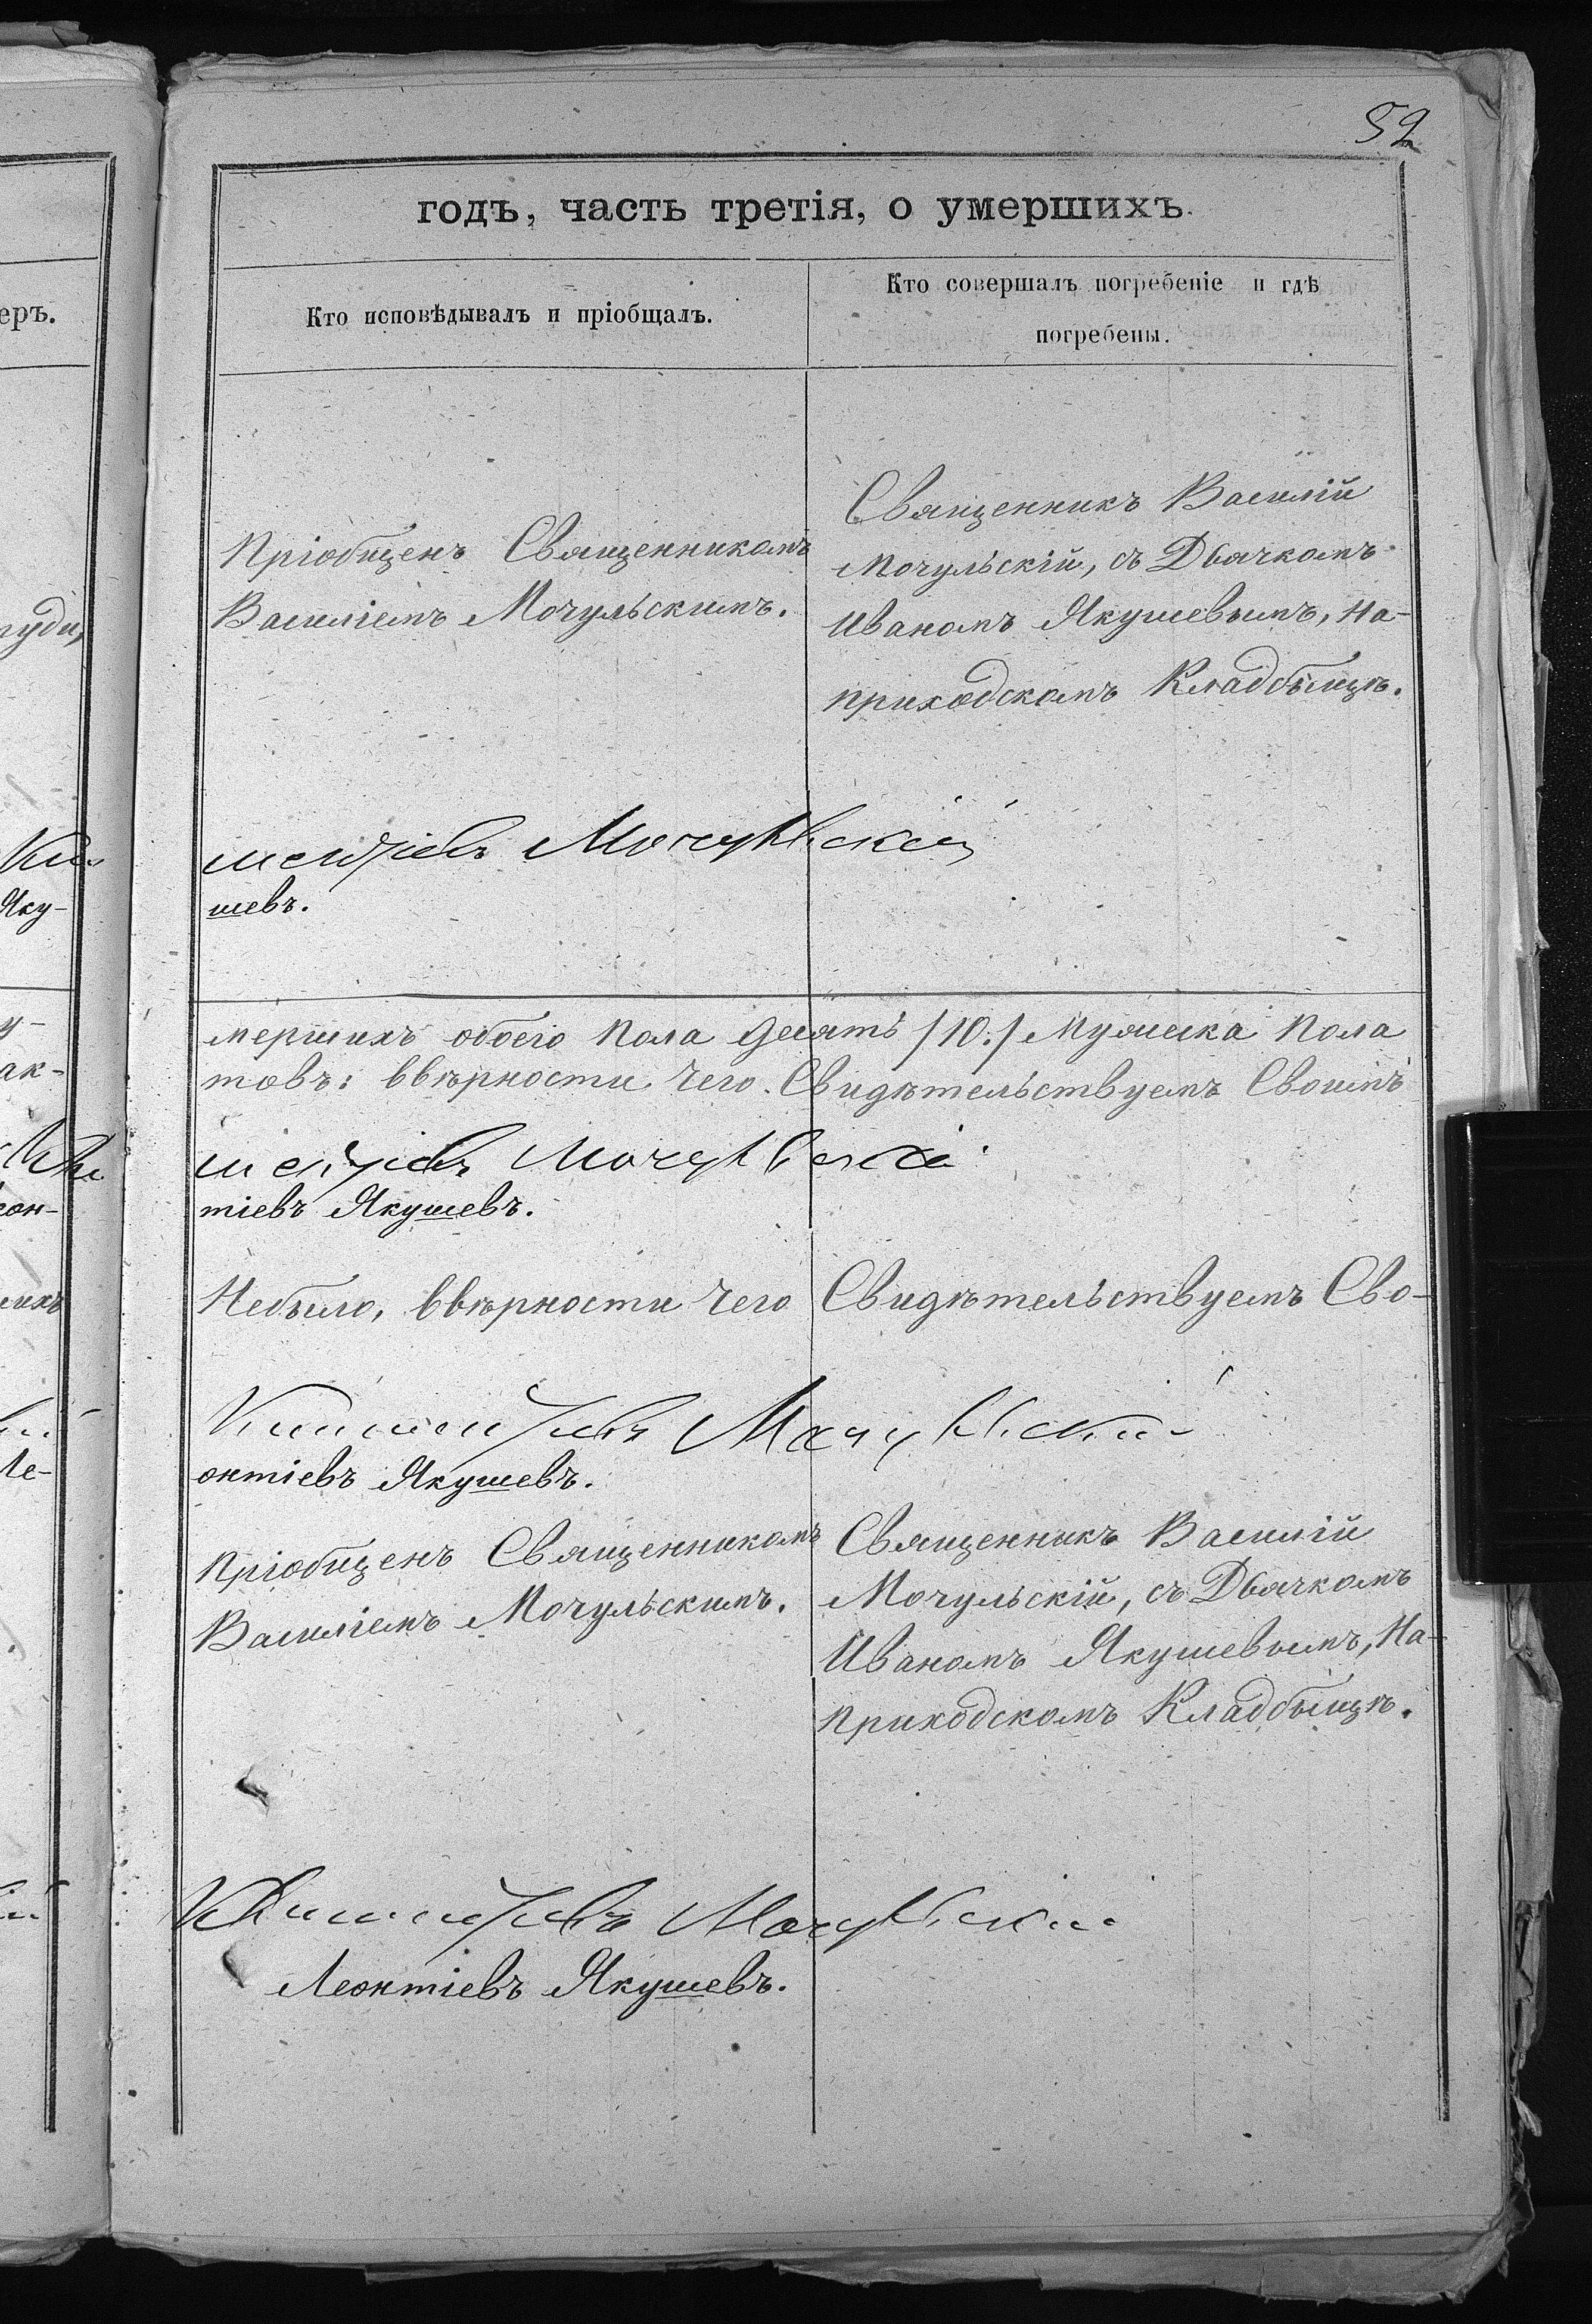 52
годъ, часть третія, о умершихъ.
Кто исповѣдывалъ и пріобщалъ.
Кто совершалъ погребеніе и гдѣ
погребены.
Пріобщенъ Священникомъ
Василіемъ Мочульскимъ.
Священникъ Василій
Мочульскій, съ Дьячкомъ
Иваномъ Якушевымъ, на-
приходскомъ Кладбыщѣ.
Мочульскій
шевъ.
мершихъ обоего пола десять /10./ Мужеска пола
товъ: ввѣрности чего Свидѣтельствуемъ Своимъ
Мочульскій
тіевъ Якушевъ.
Небыло, ввѣрности чего Свидѣтельствуемъ Сво-
Мочульскій
онтіевъ Якушевъ.
Пріобщенъ Священникомъ
Василіемъ Мочульскимъ.
Священникъ Василій
Мочульскій, съ Дьячкомъ
Иваномъ Якушевымъ, На-
приходскомъ Кладбыщѣ.
Мочульскій
Леонтіевъ Якушевъ.
еръ.
груди,
Яку-
у-
ак-
еон-
Ле-